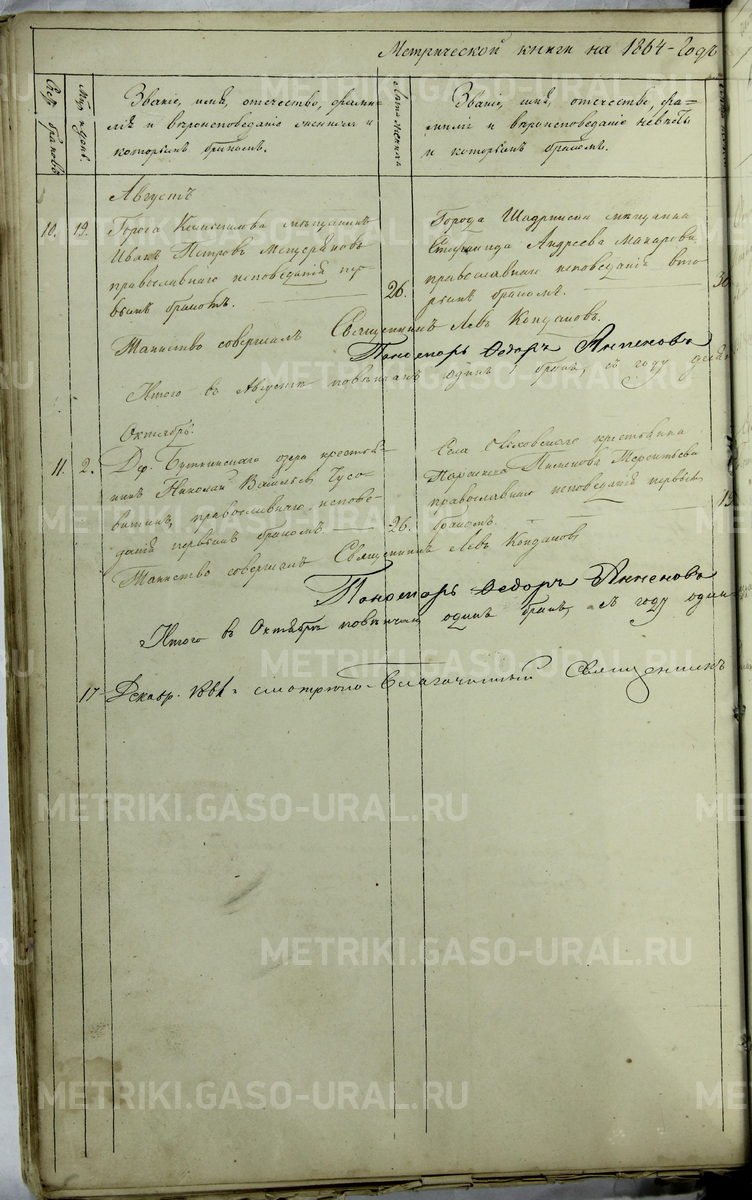 Метрической книги на 1864 Годъ
Счетъ браковъ
Мѣс. и день.
Званіе, имя, отечество, фами-
лія и вѣроисповѣданіе жениха и
которымъ бракомъ.
Лѣта жениха
Званіе, имя, отечество, фа-
милія и вѣроисповѣданіе невѣсты
и которымъ бракомъ.
Августъ
10. 19. Города мѣщанинъ
Иванъ Петровъ Мещеряковъ
православнаго исповѣданія пер-
вымъ бракомъ.
26.
Города Шадринска мѣщанка
Степанида Андреева Макарова,
православнаго исповѣданія вто-
рымъ бракомъ.
30
Таинство совершалъ Священникъ Левъ Кондаковъ.
Пономарь Ѳедоръ
Итого въ Августѣ повѣнчанъ одинъ бракъ, съ году
Октябрь.
11. 2. Др. Буткинскаго озера крестья-
нинъ Николай Васильевъ Чусо-
витинъ, православнаго исповѣ-
данія первымъ бракомъ.
26.
Села крестьянка
Параскева Пименова Терентьева
православнаго исповѣданія первымъ
бракомъ.
Таинство совершалъ Священникъ Левъ Кондаковъ
Пономарь Ѳедоръ
Итого въ Октябрѣ повѣнчанъ одинъ бракъ, съ году один
17 Декабр. смотрѣлъ Благочинный Священникъ
METRIKI.GASO-URAL.RU